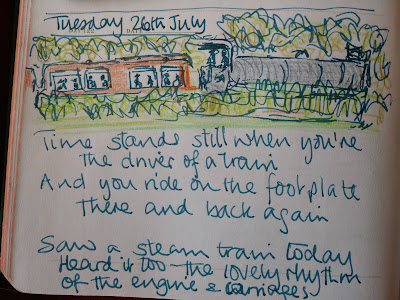 Tuesday 26th July
Time stands still when you're
the driver of a train
And you ride on the footplate
there and back again
Saw a steam train today
Heard it too - the lovely rhythm
of the engine & carriages